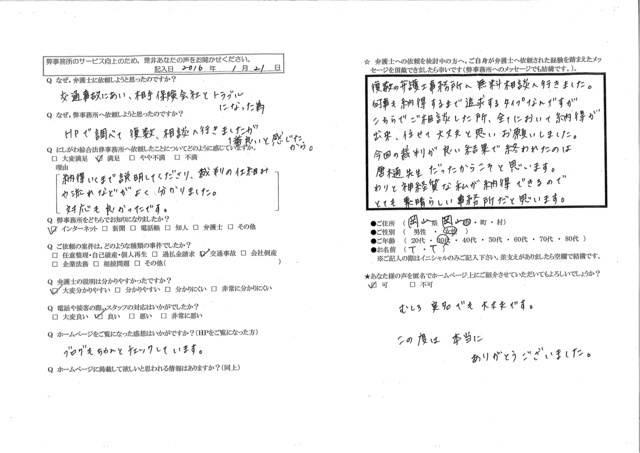 弊事務所のサービス向上のため、是非あなたの声をお聞かせください。
記入日 2016 年 1 月 21 日
Q なぜ、弁護士に依頼しようと思ったのですか？
交通事故にあい、相手保険会社とトラブル
になった為
Q なぜ、弊事務所へ依頼しようと思ったのですか？
HPで調べて複数、相談へ行きましたが
1番良いと感じたから。
Q にしがわ総合法律事務所へ依頼したことについてどのように感じていますか。
□ 大変満足 ☑ 満足 □ やや不満 □ 不満
理由
納得いくまで説明してくださり、裁判の仕組み
や流れなどがよく分かりました。
対応も良かったです。
Q 弊事務所をどちらでお知りになりましたか？
☑ インターネット □ 新聞 □ 電話帳 □ 知人 □ 弁護士 □ その他
Q ご依頼の案件は、どのような種類の事件でしたか？
□ 任意整理・自己破産・個人再生 □ 過払金請求 ☑ 交通事故 □ 会社倒産
□ 企業法務 □ 相続問題 □ その他（ ）
Q 弁護士の説明は分かりやすかったですか？
☑ 大変分かりやすい □ 分かりやすい □ 分かりにくい □ 非常に分かりにくい
Q 電話や接客の際、スタッフの対応はいかがでしたか？
□ 大変良い ☑ 良い □ 悪い □ 非常に悪い
Q ホームページをご覧になった感想はいかがですか？（HPをご覧になった方）
ブログもちゃんとチェックしています。
Q ホームページに掲載して欲しいと思われる情報はありますか？（同上）
☆ 弁護士への依頼を検討中の方へ、ご自身が弁護士へ依頼された経験を踏まえたメッセージを頂戴できましたら幸いです（弊事務所へのメッセージでも結構です。）。
複数の弁護士事務所へ無料相談へ行きました。
何事も納得するまで追求するタイプなんですが
こちらでご相談した所、全てにおいて納得が
出来、任せて大丈夫と思いお願いしました。
今回の裁判が良い結果で終われたのは
先生だったからこそと思います。
わりと神経質な私が納得できるので
とても素晴らしい事務所だと思います。
●ご住所 （ 岡山 県 岡山 市・町・村）
●ご性別 （ 男性 ・ 女性 ）
●ご年齢 （ 20代 ・ 30代 ・ 40代 ・ 50代 ・ 60代 ・ 70代 ・ 80代 ）
●お名前 （ T . T ）
※ご記入の際はイニシャルのみご記入下さい。差支えがありましたら空欄で結構です。
★あなた様の声を匿名でホームページ上にご紹介させていただいてもよろしいでしょうか？
☑ 可 □ 不可
むしろ実名でも大丈夫です。
この度は 本当に
ありがとうございました。